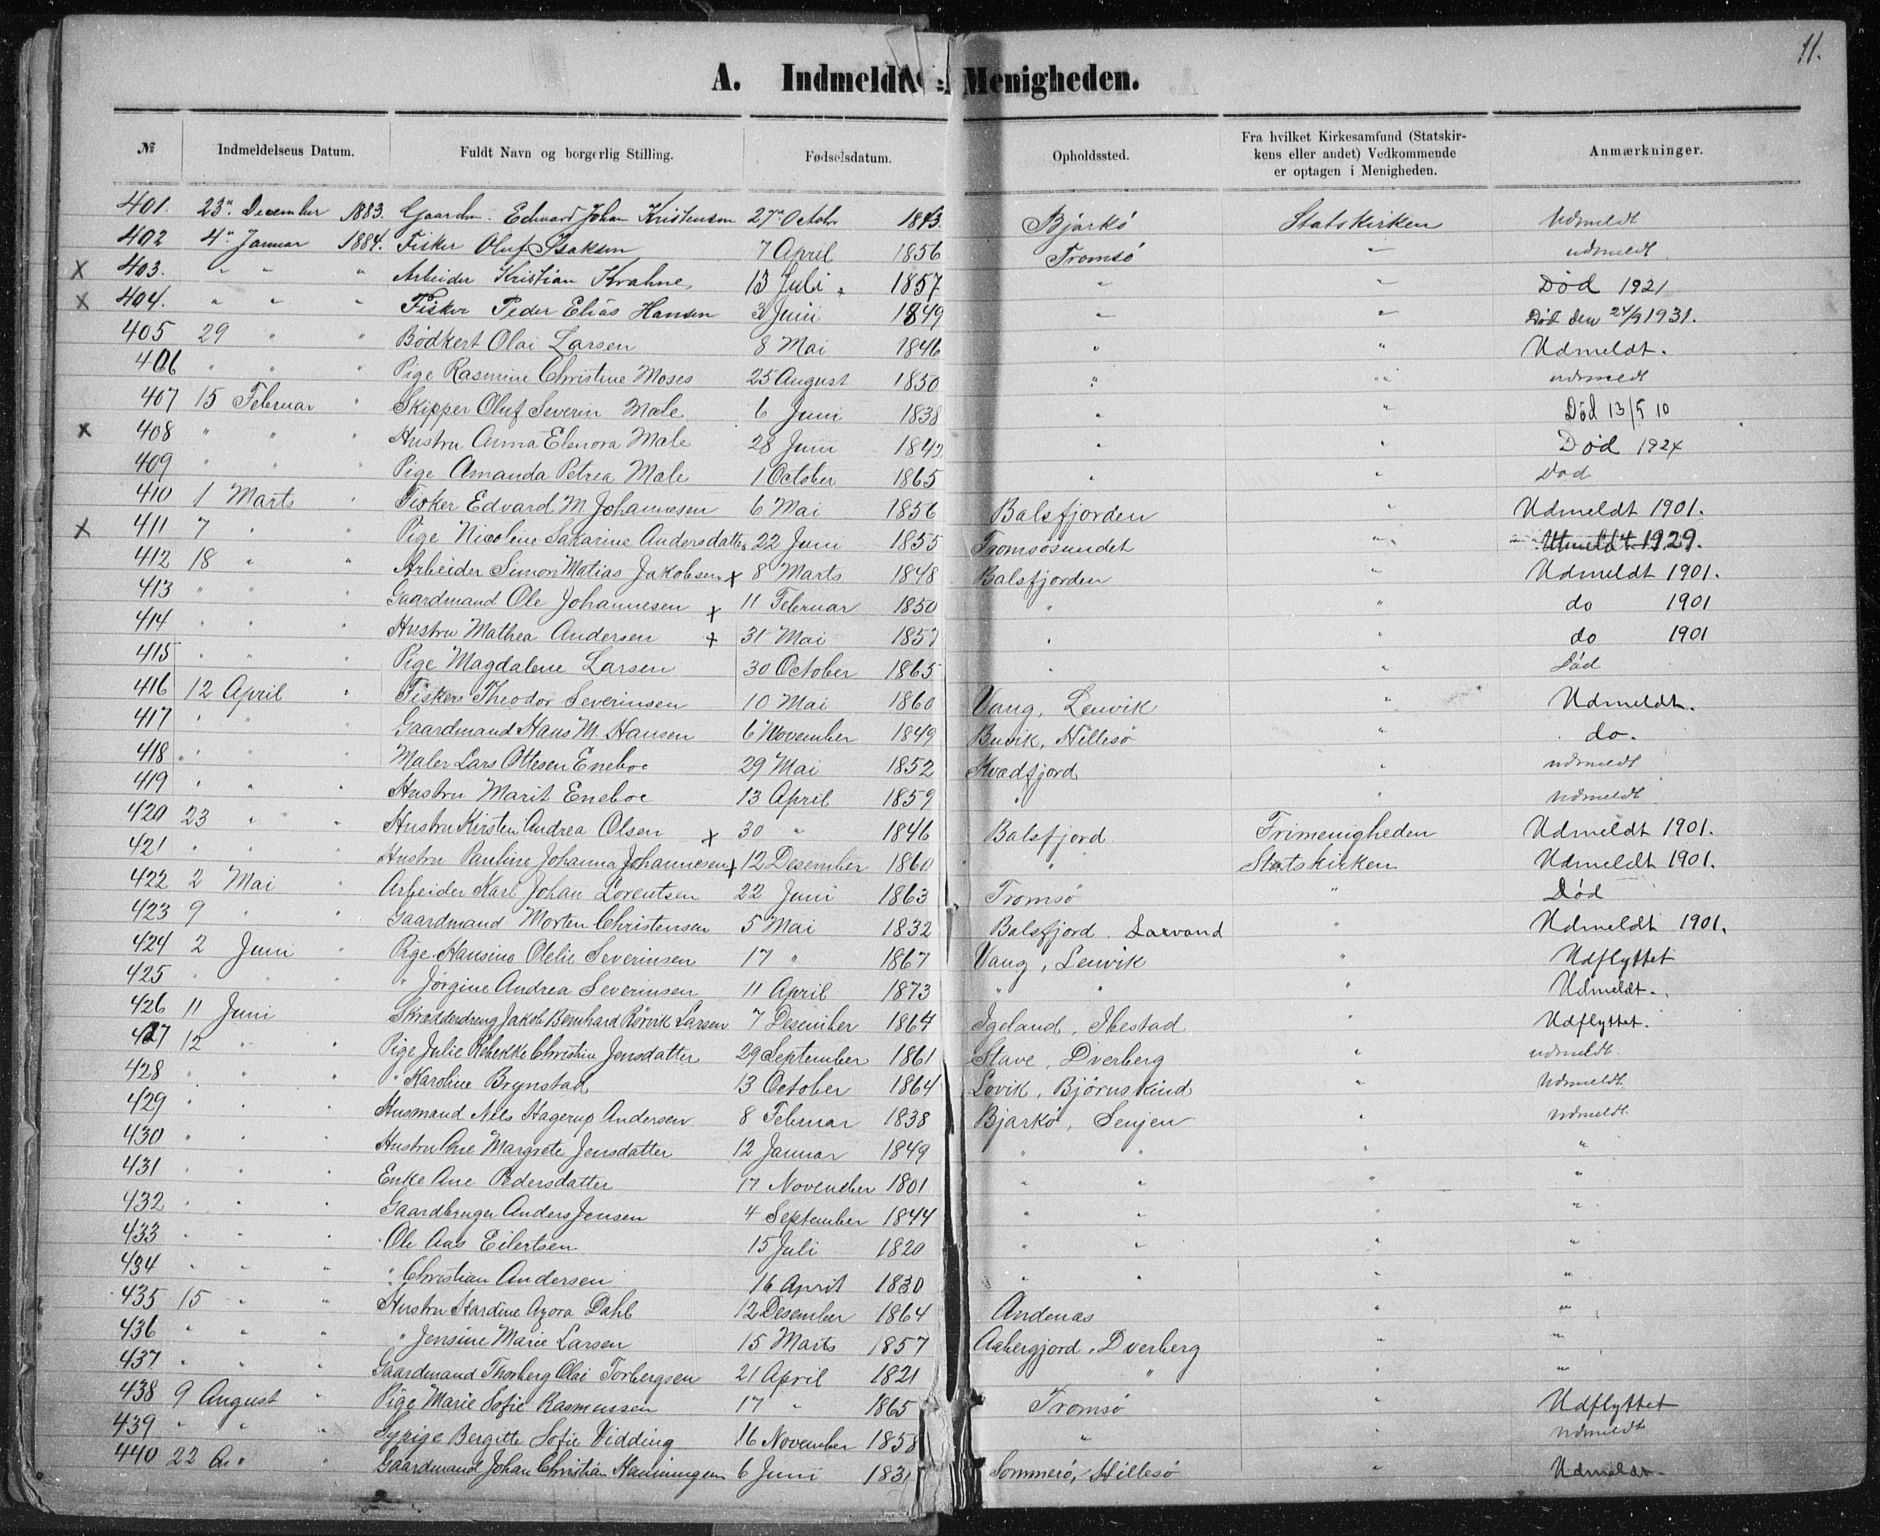 11.
A. Indmeldte i Menigheden.
№ Indmeldelsens Datum. Fuldt Navn og borgerlig Stilling. Fødselsdatum. Opholdssted. Fra hvilket Kirkesamfund (Statskirkens eller andet) Vedkommende er optagen i Menigheden. Anmærkninger.
401. 23de December 1883. Gaardm. Edvard Johan Kristensen 27de Octobr 1843. Bjarkö Statskirken Udmeldt
402 4de Januar 1884. Fisker Oluf Isaksen 7 April 1856 Tromsö " udmeldt
x 403. " " " Arbeider Kristian Krahne 13 Juli 1857 " " Død 1921
x 404. " " " Fisker Peder Elias Hansen 3 Juni 1849 " " Død den 24/9 1931.
405 29 " " Bødkert Olai Larsen 8 Mai 1846 " " Udmeldt.
406 " " " Pige Rasmine Christine Moses 25 August 1850 " " udmeldt
407 15 Februar " Skipper Oluf Severin Male 6 Juni 1838 " " Død 13/5 10
x 408 " " " Hustru Anna Elenora Male 28 Juni 1842 " " Død 1924
409 " " " Pige Amanda Petrea Male 1 October 1865 " " Død
410 1 Marts " Fisker Edvard M Johannesen 6 Mai 1856 Balsfjorden " Udmeldt 1901.
x 411 7 " " Pige Nicoline Sakarine Andersdatter 22 Juni 1855 Tromsösundet " Utmeldt 1929.
412 18 " " Arbeider Simon Matias Jakobsen x 8 Marts 1848 Balsfjorden " Udmeldt 1901.
413 " " " Gaardmand Ole Johannesen x 11 Februar 1850 " " do 1901
414 " " " Hustru Mathea Andersen x 31 Mai 1857 " " do 1901
415 " " " Pige Magdalene Larsen 30 October 1865 " " Død
416 12 April " Fisker Theodor Severinsen 10 Mai 1860 Vang, Lenvik " Udmeldt.
417 " " Gaardmand Hans M. Hansen 6 November 1849 Buvik, Hillesö " do.
418 " " Maler Lars Ottesen Eneboe 29 Mai 1852 Kvædfjord " udmeldt
419 " " " Hustru Marit Eneboe 13 April 1859 " " Udmeldt
420 23 " " Hustru Kirsten Andrea Olsen x 30 " 1846 Balsfjord Frimenigheden Udmeldt 1901.
421 " " " Hustru Pauline Johanna Johannesen x 12 Desember 1860 " Statskirken Udmeldt 1901.
422 2 Mai " Arbeider Karl Johan Lorentsen 22 Juni 1863 Tromsö " Død
423 9 " " Gaardmand Morten Christensen 5 Mai 1832 Balsfjord. Laxvand " Udmeldt 1901.
424 2 Juni " Pige Hansine Olelie Severinsen 17 " 1867 Vang, Lenvik " Udflyttet
425 " " " " Jørgine Andrea Severinsen 11 April 1873 " " " Udmeldt.
426 11 Juni " Skrædderdreng Jakob Bernhard Rörvik Larsen 7 Desember 1864 Igeland, Ibestad " Udflyttet.
427 12 " " Pige Julie Rebekke Christine Jensdatter 29 September 1861 Stave, Dverberg " udmeldt
428 " " " " Karoline Brynstad 13 October 1864 Lovik, Bjørnskind " Udmeldt
429 " " " Husmand Nils Hagerup Andersen 8 Februar 1838 Bjarkö, Senjen " Udmeldt
430 " " " Hustru Ane Margrete Jensdatter 12 Januar 1849 " " " "
431 " " " Enke Ane Pedersdatter 17 November 1801 " " " "
432 " " " Gaardbruger Anders Jensen 4 September 1844 " " " "
433 " " " Ole Aas Eilertsen 15 Juli 1820 " " " "
434 " " " " Christian Andersen 16 April 1830 " " " "
435 15 " " Hustru Hardine Agora Dahl 12 Desember 1864 Andenæs " "
436 " " " " Jensine Marie Larsen 15 Marts 1857 Aabergjord, Dverberg " "
437 " " " Gaardmand Thorberg Olai Torbergsen 21 April 1821 " " "
438 9 August " Pige Marie Sofie Rasmussen 17 " 1865 Tromsö " Udflyttet
439 " " " Sypige Bergitte Sofie Vidding 16 November 1858 " " Udmeldt
440 22 " " Gaardmand Johan Christian Hanningsen 6 Juni 1831 Sommerö, Hillesö " Udmeldt